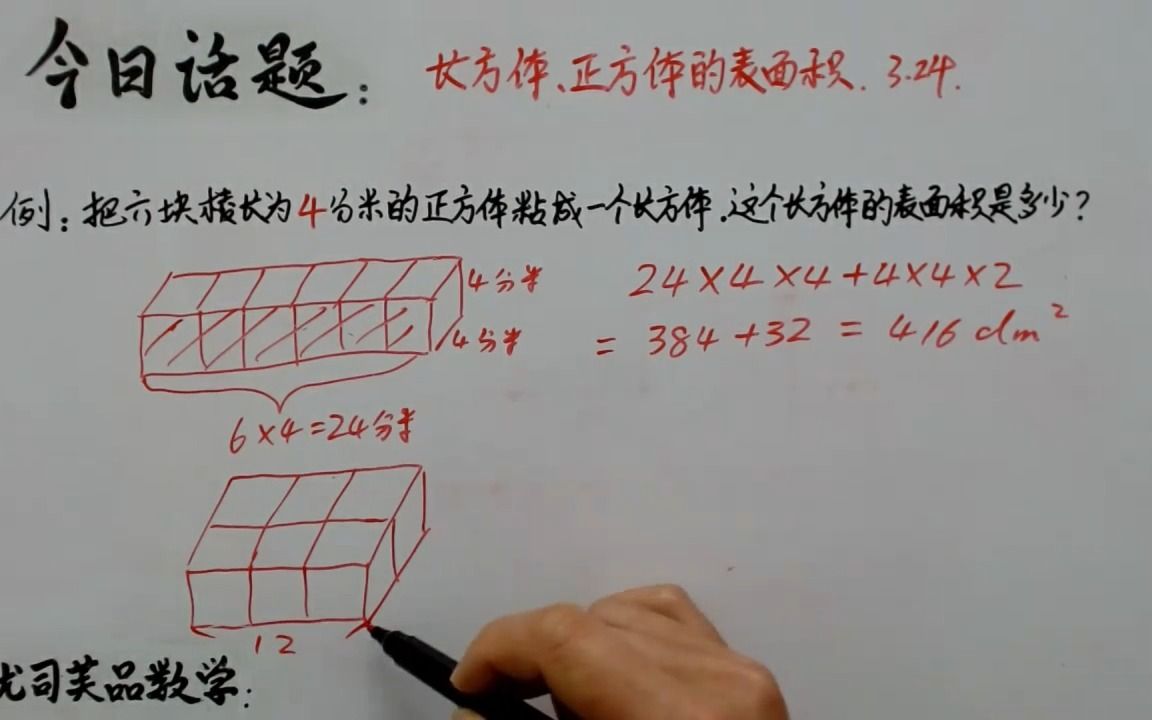 今日话题： 长方体、正方体的表面积. 3.24.
例：把六块棱长为4分米的正方体粘成一个长方体.这个长方体的表面积是多少？
4分米
24×4×4+4×4×2
4分米
=384+32=416dm²
6×4=24分米
12
尤司芙品数学：